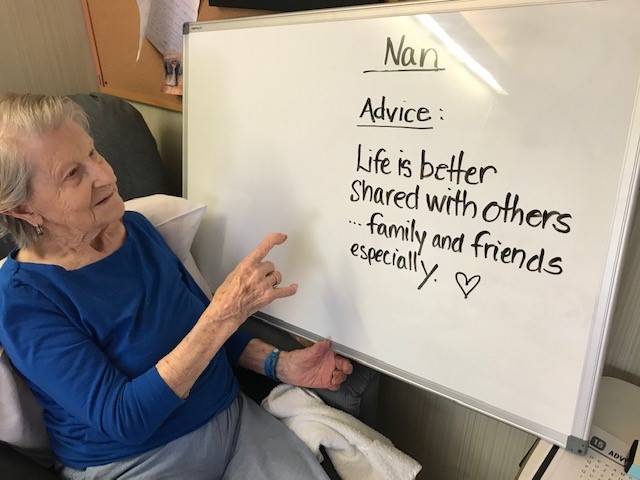 Nan
Advice:
Life is better
shared with others
... family and friends
especially. ♡